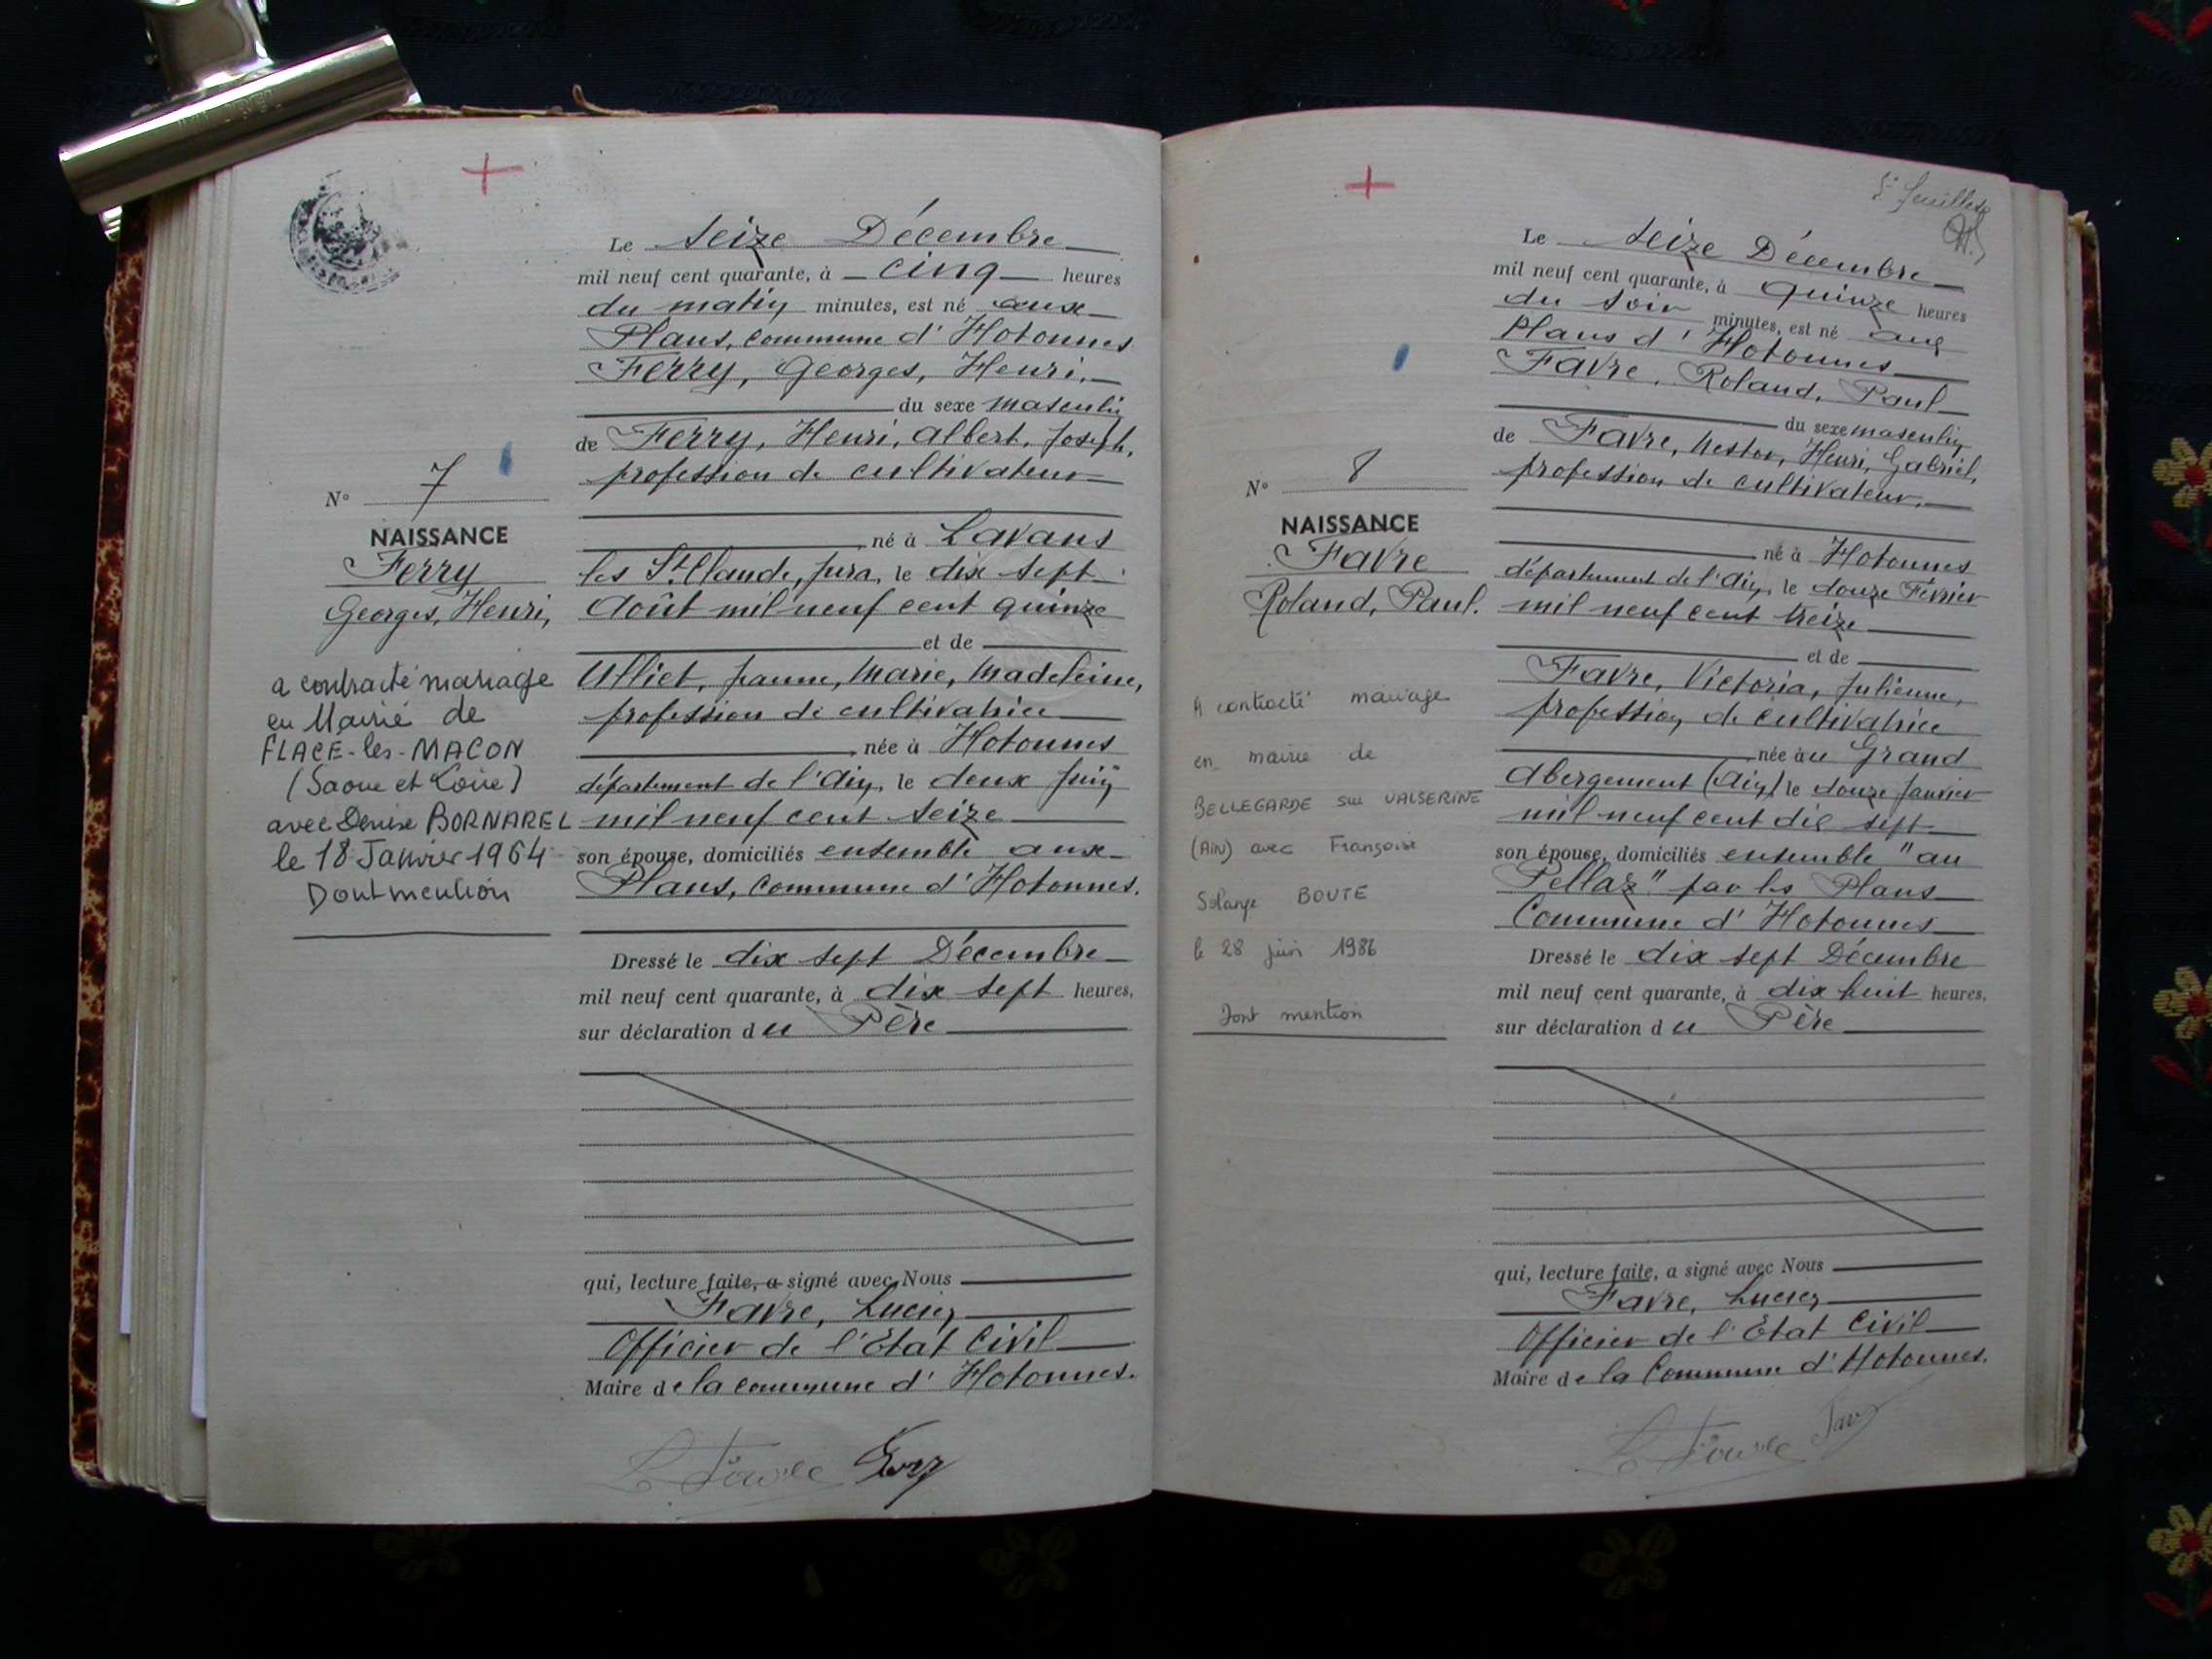 Le seize Décembre
mil neuf cent quarante, à cinq heures
du matin minutes, est né aux
Plans, commune d'Hotonnes
Ferry, Georges, Henri,
du sexe masculin
de Ferry, Henri, Albert, Joseph,
profession de cultivateur
né à Lavans
les St Claude, Jura, le dix sept
Août mil neuf cent quinze
et de
Jeanne, Marie, Madeleine,
profession de cultivatrice
née à Hotonnes
département de l'Ain, le deux Juin
mil neuf cent seize
son épouse, domiciliés ensemble aux
Plans, commune d'Hotonnes.
Dressé le dix sept Décembre
mil neuf cent quarante, à dix sept heures,
sur déclaration du Père
qui, lecture faite, a signé avec Nous
Favre, Lucien
Officier de l'Etat Civil
Maire de la commune d'Hotonnes.
N° 7
NAISSANCE
Ferry
Georges, Henri,
a contracté mariage
en Mairie de
FLACE-les-MACON
(Saone et Loire)
avec Denise BORNAREL
le 18 Janvier 1964
Dont mention
5e feuillet
Le seize Décembre
mil neuf cent quarante, à quinze heures
du soir minutes, est né aux
Plans d'Hotonnes
Favre, Roland, Paul
du sexe masculin
de Favre, Nestor, Henri, Gabriel,
profession de cultivateur,
né à Hotonnes
département de l'Ain, le douze Février
mil neuf cent treize
et de
Favre, Victoria, Julienne,
profession de cultivatrice
née au Grand
Abergement (Ain) le douze Janvier
mil neuf cent dix sept
son épouse, domiciliés ensemble "au
Pellaz" par les Plans
Commune d'Hotonnes
Dressé le dix sept Décembre
mil neuf cent quarante, à dix huit heures,
sur déclaration du Père
qui, lecture faite, a signé avec Nous
Favre, Lucien
Officier de l'Etat Civil
Maire de la Commune d'Hotonnes.
N° 8
NAISSANCE
Favre
Roland, Paul.
A contracté mariage
en mairie de
BELLEGARDE sur VALSERINE
(Ain) avec Françoise
Solange BOUTE
le 28 juin 1986
Dont mention